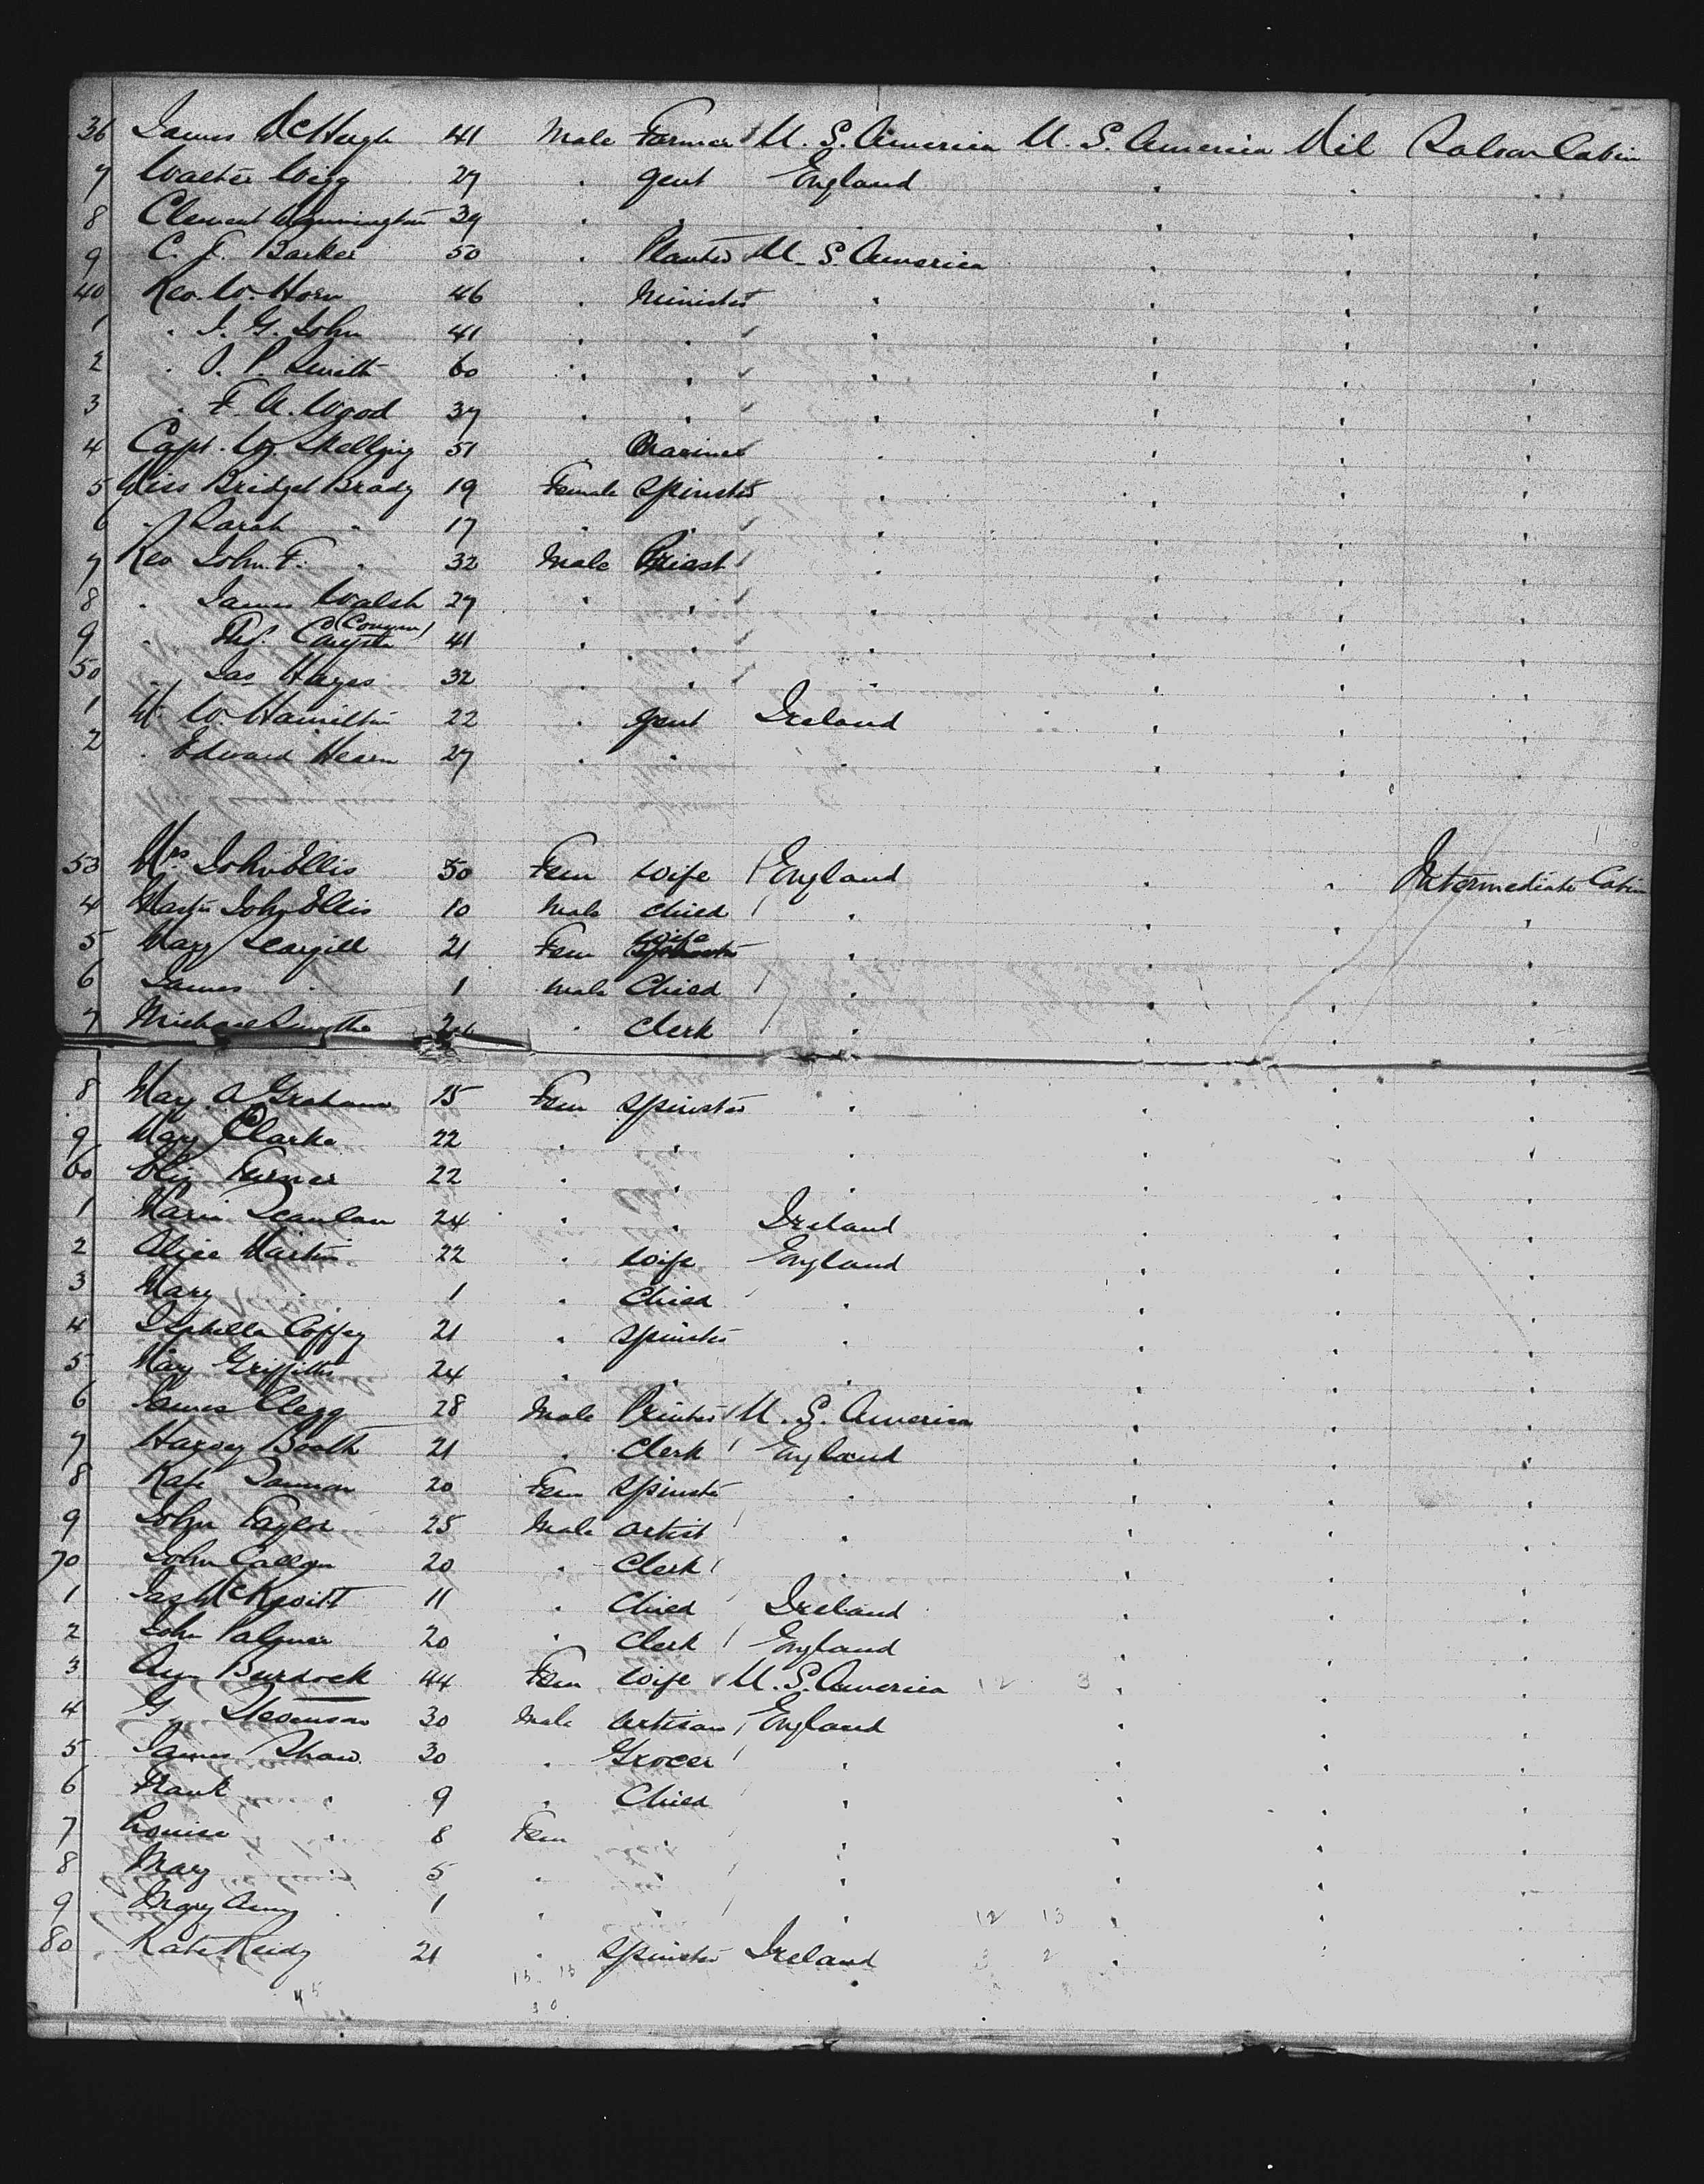 36 James McHugh 41 Male Farmer U. S. America U. S. America Nil Saloon Cabin
7 Walter Wigg 27 . gent England . . . .
8 Clement 39 . . . . . .
9 C. J. Barker 50 . Planter U. S. America . . .
40 Rev. W. Horn 46 . Minister . . . .
1 . I. G. John 41 . . . . . .
2 . O. P. Smith 60 . . . . . .
3 . F. A. Wood 37 . . . . . .
4 Capt. W. Skelling 51 . Mariner . . . .
5 Miss Bridget Brady 19 Female Spinster . . . .
6 . Sarah . 17 . . . . . .
7 Rev John F. . 32 Male Priest . . . .
8 . James Walsh 27 . . . . . .
9 . Thos. 41 . . . . . .
50 . Jas Hayes 32 . . . . . .
1 W. Hamilton 22 . gent Ireland . . .
2 . Edward Hearn 27 . . . . . .
53 Mrs John Ellis 30 Fem wife England . . Intermediate Cabin
4 Master John Ellis 10 Male child . . . .
5 Mary Scargill 21 Fem wife . . . .
6 James . 1 Male Child . . . .
7 Michael . Clerk . . . .
8 Mary A Graham 15 Fem Spinster . . . .
9 Mary Clarke 22 . . . . . .
60 Eliz Turner 22 . . . . . .
1 Maria Scanlan 24 . . Ireland . . .
2 Alice Martin 22 . wife England . . .
3 Mary . 1 . Child . . . .
4 Isabella Coffey 21 . Spinster . . . .
5 Mary Griffiths 24 . . . . . .
6 James Clegg 28 Male Printer U. S. America . . .
7 Harvey Booth 21 . Clerk England . . .
8 Kate 20 Fem Spinster . . . .
9 John Taylor 25 Male artist . . . .
70 John Callan 20 . Clerk . . . .
1 Jas McKevitt 11 . Child Ireland . . .
2 John Palmer 20 . Clerk England . . .
3 Ann Burdock 44 Fem wife U. S. America 12 3 . . .
4 G. Stevenson 30 Male artisan England . . .
5 James Shaw 30 . Grocer . . . .
6 Frank . 9 . Child . . . .
7 Louisa . 8 Fem . . . .
8 Mary . 5 . . . . . .
9 Mary Ann . 1 . . . 12 13 . . .
80 Kate Reidy 21 . Spinster Ireland 3 2 . . .
45 15 15
30